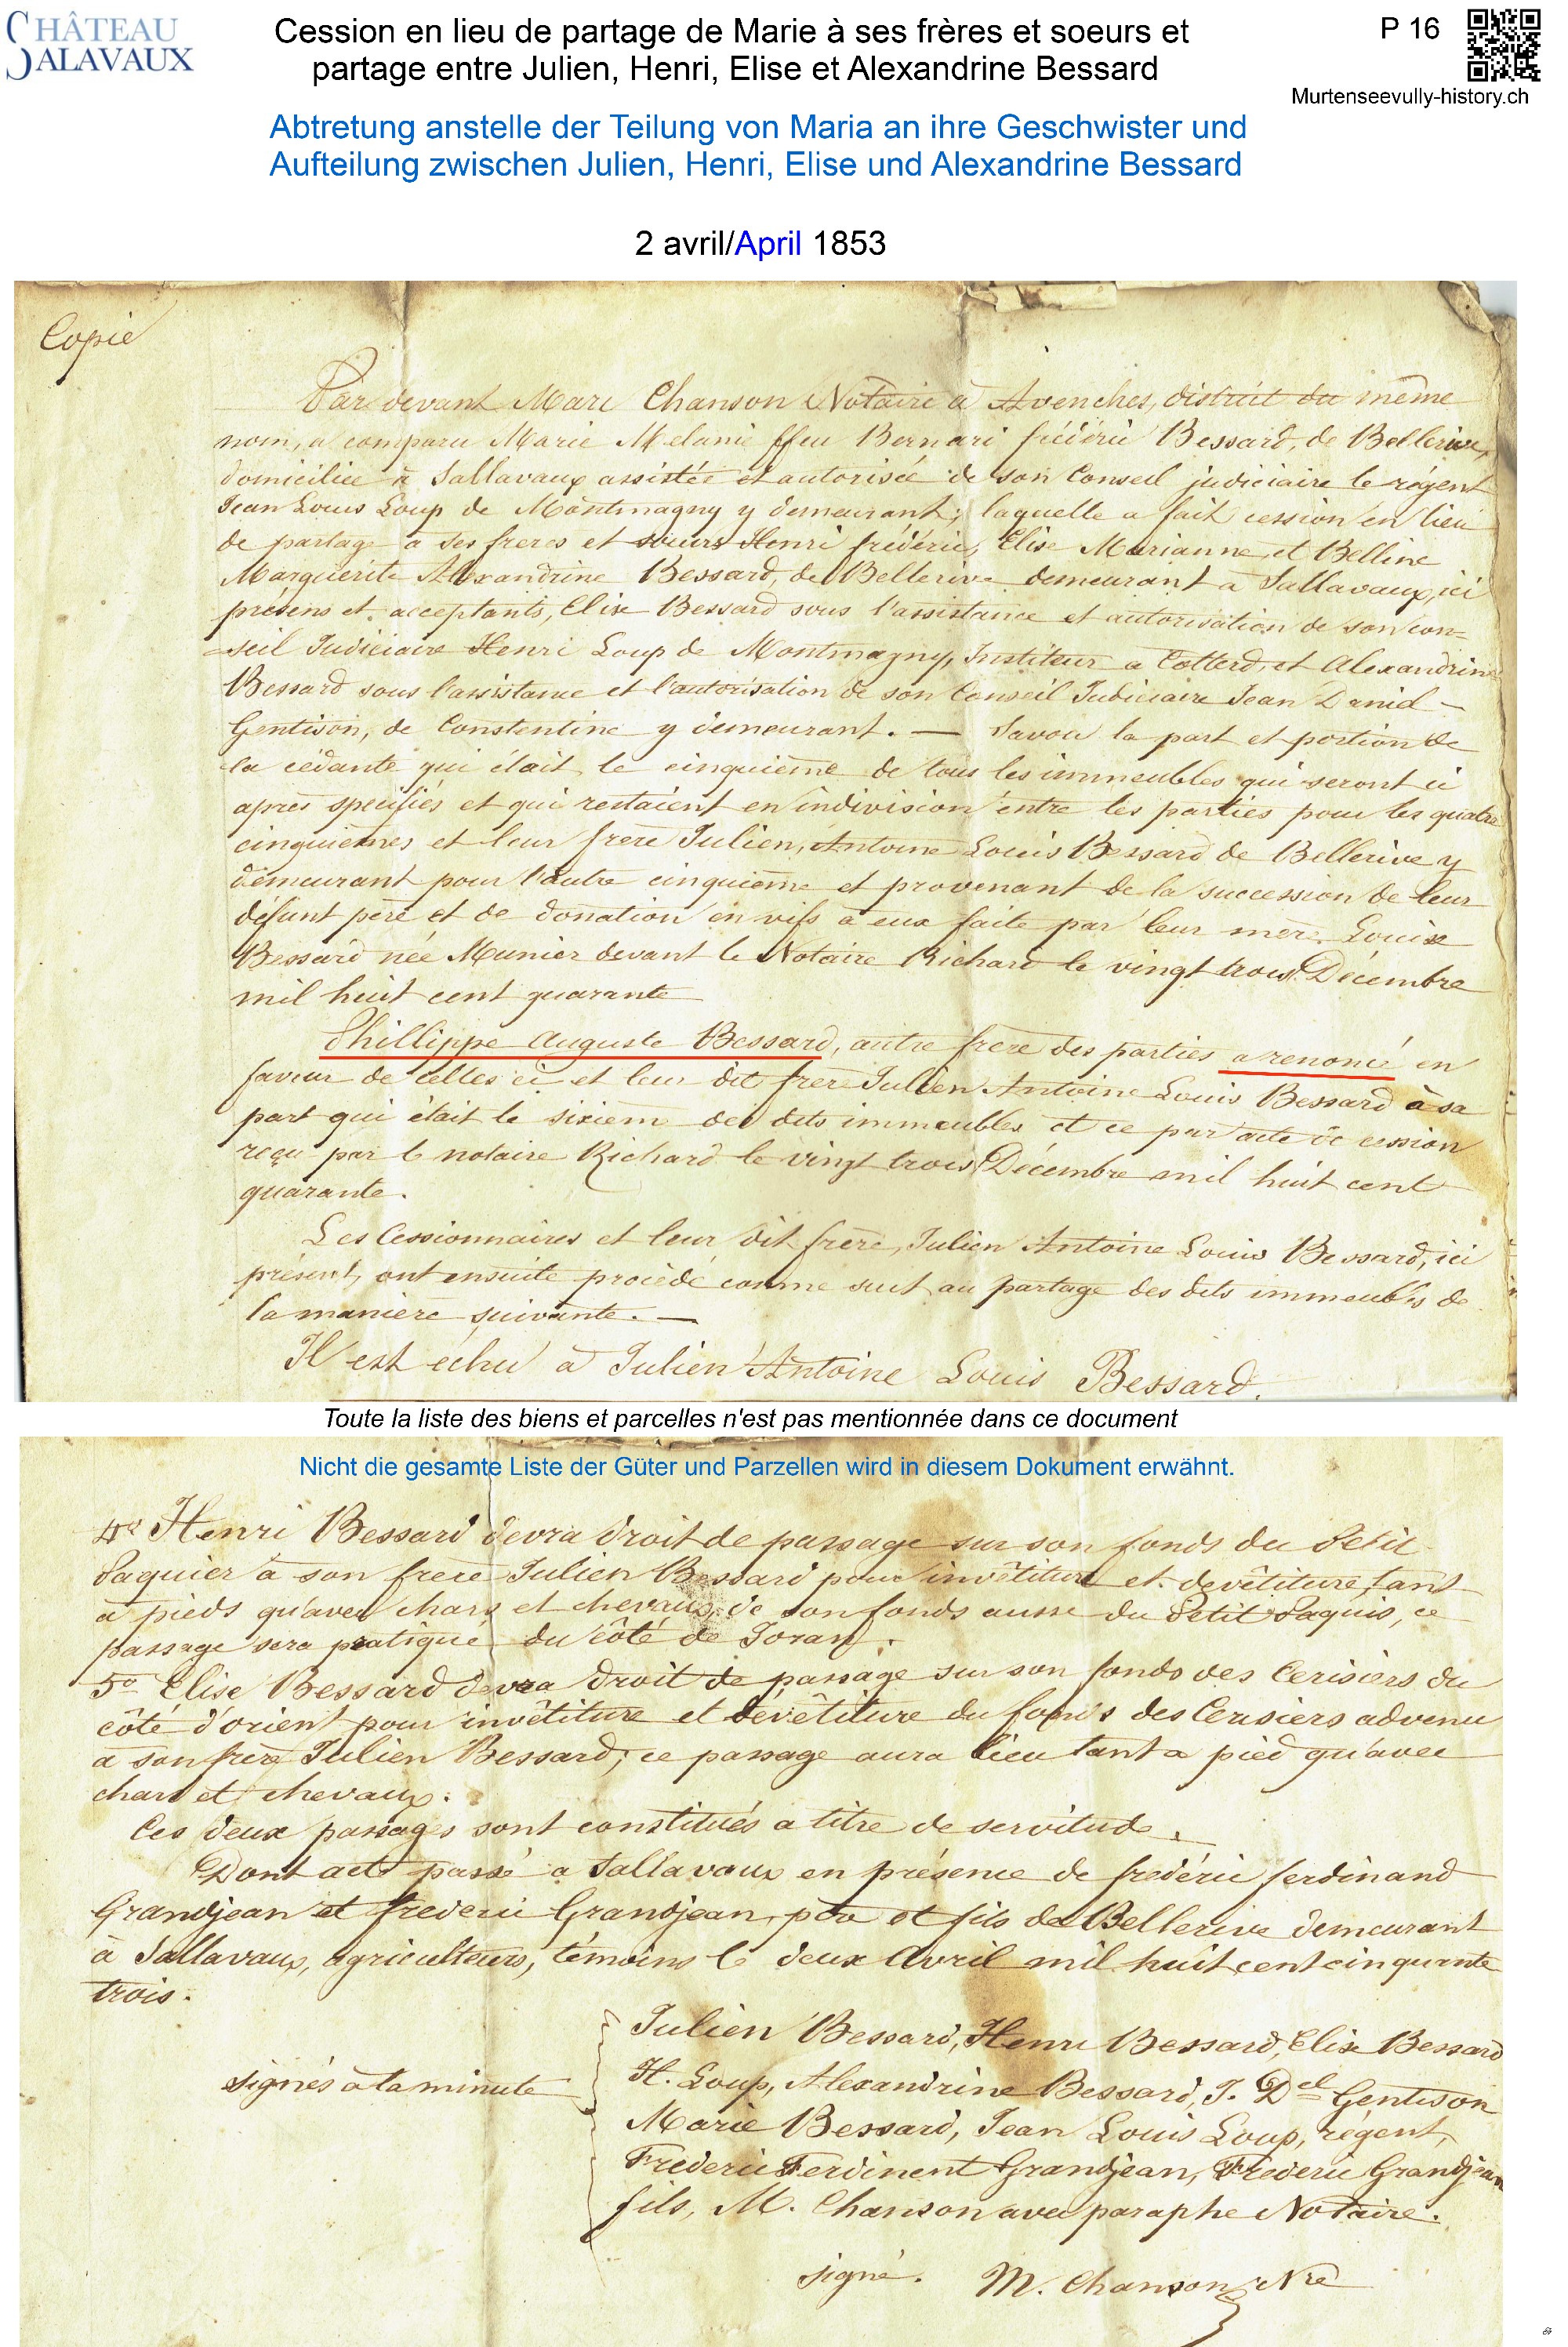 CHÂTEAU
SALAVAUX
Cession en lieu de partage de Marie à ses frères et soeurs et
partage entre Julien, Henri, Elise et Alexandrine Bessard
P 16
Murtenseevully-history.ch
Abtretung anstelle der Teilung von Maria an ihre Geschwister und
Aufteilung zwischen Julien, Henri, Elise und Alexandrine Bessard
2 avril/April 1853
Copie
Par devant Marc Chanson Notaire à Avenches, district du même
nom, a comparu Marie Melanie ffeu Bernard frédéric Bessard, de Bellerive,
domiciliée à Sallavaux assistée et autorisée de son Conseil judiciaire le régent
Jean Louis Loup de Montmagny y demeurant; laquelle a fait cession en lieu
de partage à ses freres et soeurs Henri frédéric, Elise Marianne et Belline
Marguerite Alexandrine Bessard, de Bellerive demeurant à Sallavaux, ici
présens et acceptants, Elise Bessard sous l'assistance et autorisation de son con=
=seil Judiciaire Henri Loup de Montmagny, Instituteur a Cotterd, et Alexandrine
Bessard sous l'assistance et l'autorisation de son Conseil Judiciaire Jean Daniel
Gentison, de Constentine y demeurant. — Savoir la part et portion de
la cédante qui était le cinquième de tous les immeubles qui seront ci
après spécifiés et qui restaient en indivision entre les parties pour les quatre
cinquièmes et leur frère Julien, Antoine Louis Bessard de Bellerive y
demeurant pour l'autre cinquième et provenant de la succession de leur
défunt père et de donation en vifs à eux faite par leur mère Louise
Bessard née Munier devant le Notaire Richard le vingt trois Décembre
mil huit cent quarante
Phillippe Auguste Bessard, autre frère des parties a renoncé en
faveur de celles ci et leur dit frère Julien Antoine Louis Bessard à sa
part qui était le sixiem des dits immeubles et ce par acte de cession
reçu par le notaire Richard le vingt trois Décembre mil huit cent
quarante.
Les Cessionnaires et leur dit frère, Julien Antoine Louis Bessard, ici
présent, ont ensuite procédé comme suit au partage des dits immeubles de
la manière suivante. —
Il est échu à Julien Antoine Louis Bessard.
Toute la liste des biens et parcelles n'est pas mentionnée dans ce document
Nicht die gesamte Liste der Güter und Parzellen wird in diesem Dokument erwähnt.
4º Henri Bessard devra droit de passage sur son fonds du Petit
Paquier à son frère Julien Bessard pour invêtiture et devêtiture, tant
à pieds qu'avec chars et chevaux, de son fonds aussi du Petit Paquis, ce
passage sera pratiqué du côté de Joran.
5º Elise Bessard devra droit de passage sur son fonds des Cerisiers du
côté d'orient pour invêtiture et dévêtiture du fonds des Cerisiers advenu
à son frère Julien Bessard; ce passage aura lieu tant à pied qu'avec
chars et chevaux.
Ces deux passages sont constitués a titre de servitude.
Dont acte passé a Sallavaux en présence de frédéric ferdinand
Grandjean et frederic Grandjean, père et fils de Bellerive demeurant
à Sallavaux, agriculteurs, témoins le deux Avril mil huit cent cinquante
trois.
Julien Bessard, Henri Bessard, Elise Bessard
signés à la minute
H. Loup, Alexandrine Bessard, J. Del Gentison
Marie Bessard, Jean Louis Loup, régent,
Frederic Ferdinent Grandjean, Frederic Grandjean
fils, M. Chanson avec paraphe Notaire.
signé. M. Chanson Nre